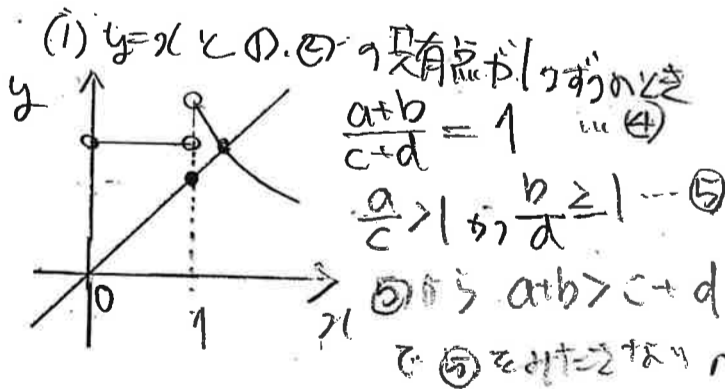 (i) y=xと①.②の共有点が1つずつのとき
y
(a+b)/(c+d) = 1 …④
a/c>1かつb/d≧1…⑤
0
1
x
⑤から a+b>c+d
で⑤をみたさない